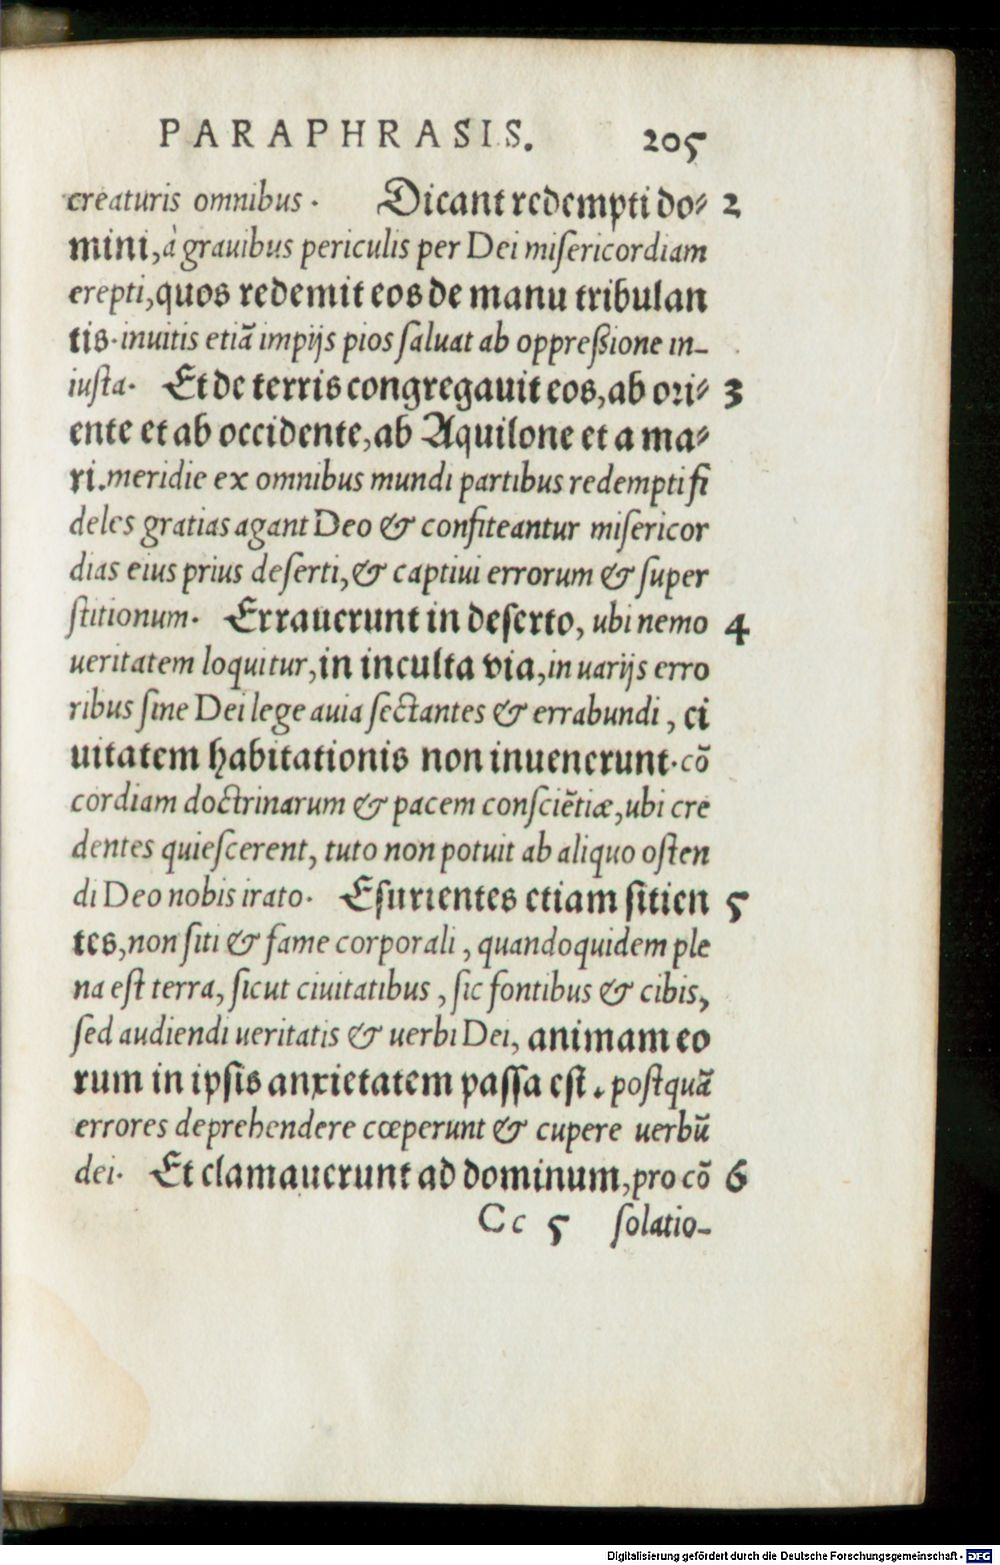 PARAPHRASIS. 205
creaturis omnibus. Dicant redempti do- 2
mini, à grauibus periculis per Dei miſericordiam
erepti, quos redemit eos de manu tribulan
tis. inuitis etiã impijs pios ſaluat ab oppreßione in-
iuſta. Et de terris congregauit eos, ab ori- 3
ente et ab occidente, ab Aquilone et a ma-
ri. meridie ex omnibus mundi partibus redempti fi
deles gratias agant Deo & confiteantur miſericor
dias eius prius deſerti, & captiui errorum & ſuper
ſtitionum. Errauerunt in deſerto, ubi nemo 4
ueritatem loquitur, in inculta via, in uarijs erro
ribus ſine Dei lege auia ſectantes & errabundi, ci
uitatem habitationis non inuenerunt. cõ
cordiam doctrinarum & pacem conſciẽtiæ, ubi cre
dentes quieſcerent, tuto non potuit ab aliquo oſten
di Deo nobis irato. Eſurientes etiam ſitien 5
tes, non ſiti & fame corporali, quandoquidem ple
na eſt terra, ſicut ciuitatibus, ſic fontibus & cibis,
ſed audiendi ueritatis & uerbi Dei, animam eo
rum in ipſis anxietatem paſſa eſt. poſtquã
errores deprehendere cœperunt & cupere uerbũ
dei. Et clamauerunt ad dominum, pro cõ 6
Cc 5 ſolatio-
Digitalisierung gefördert durch die Deutsche Forschungsgemeinschaft - DFG